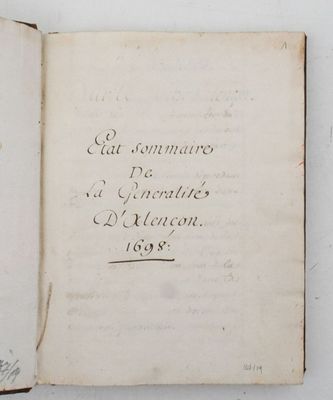 Etat sommaire
De
La Generalité
D'Alençon.
1698.